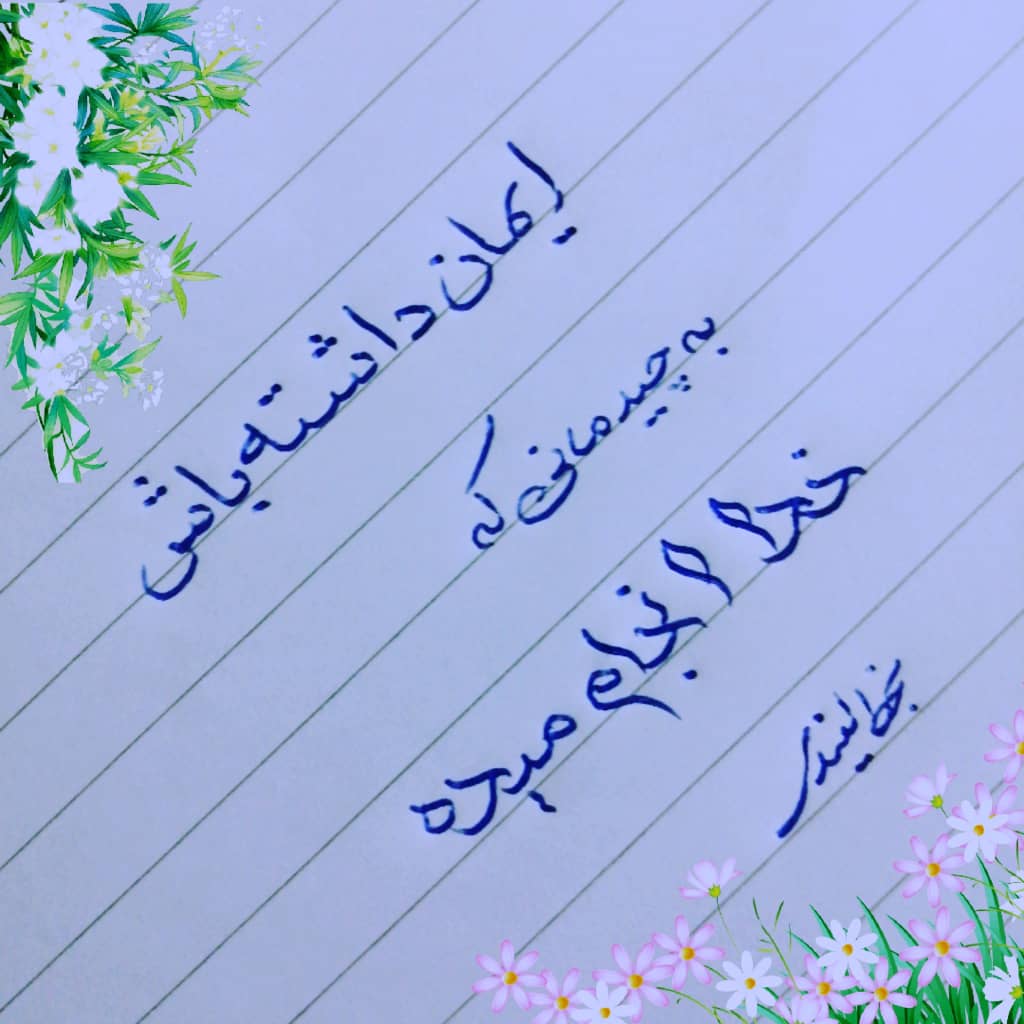 ایمان داشته باش
به چیدمانی که
خدا انجام میده